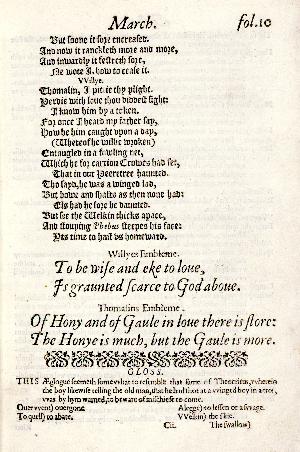 March. fol.10
But soone it sore encreased.
And now it ranckleth more and more,
And inwardly it festreth sore,
Ne wote I, how to cease it.
Willye.
Thomalin, I pittie thy plight.
Perdie with loue thou diddest fight:
I know him by a token.
For once I heard my father say,
How he him caught vpon a day,
(Whereof he wilbe wroken)
Entangled in a fowling net,
Which he for carrion Crowes had set,
That in our Peeretree haunted.
Tho sayd, he was a winged lad,
But bowe and shafts as then none had:
Els had he sore be daunted.
But see the Welkin thicks apace,
And stouping Phebus steepes his face:
Yts time to hast vs homeward.
Willyes Embleme.
To be wise and eke to loue,
Is graunted scarce to God aboue.
Thomalins Embleme.
Of Hony and of Gaule in loue there is store:
The Honye is much, but the Gaule is more.
GLOSS.
THIS Æglogue seemeth somewhat to resemble that same of Theocritus, wherein
the boy likewise telling the old man, that he had shot at a winged boy in a tree,
was by hym warned, to beware of mischiefe to come.
Ouer went) ouergone. Alegge) to lessen or aswage.
To quell) to abate. Welkin) the skie.
C.ii. The swallow)